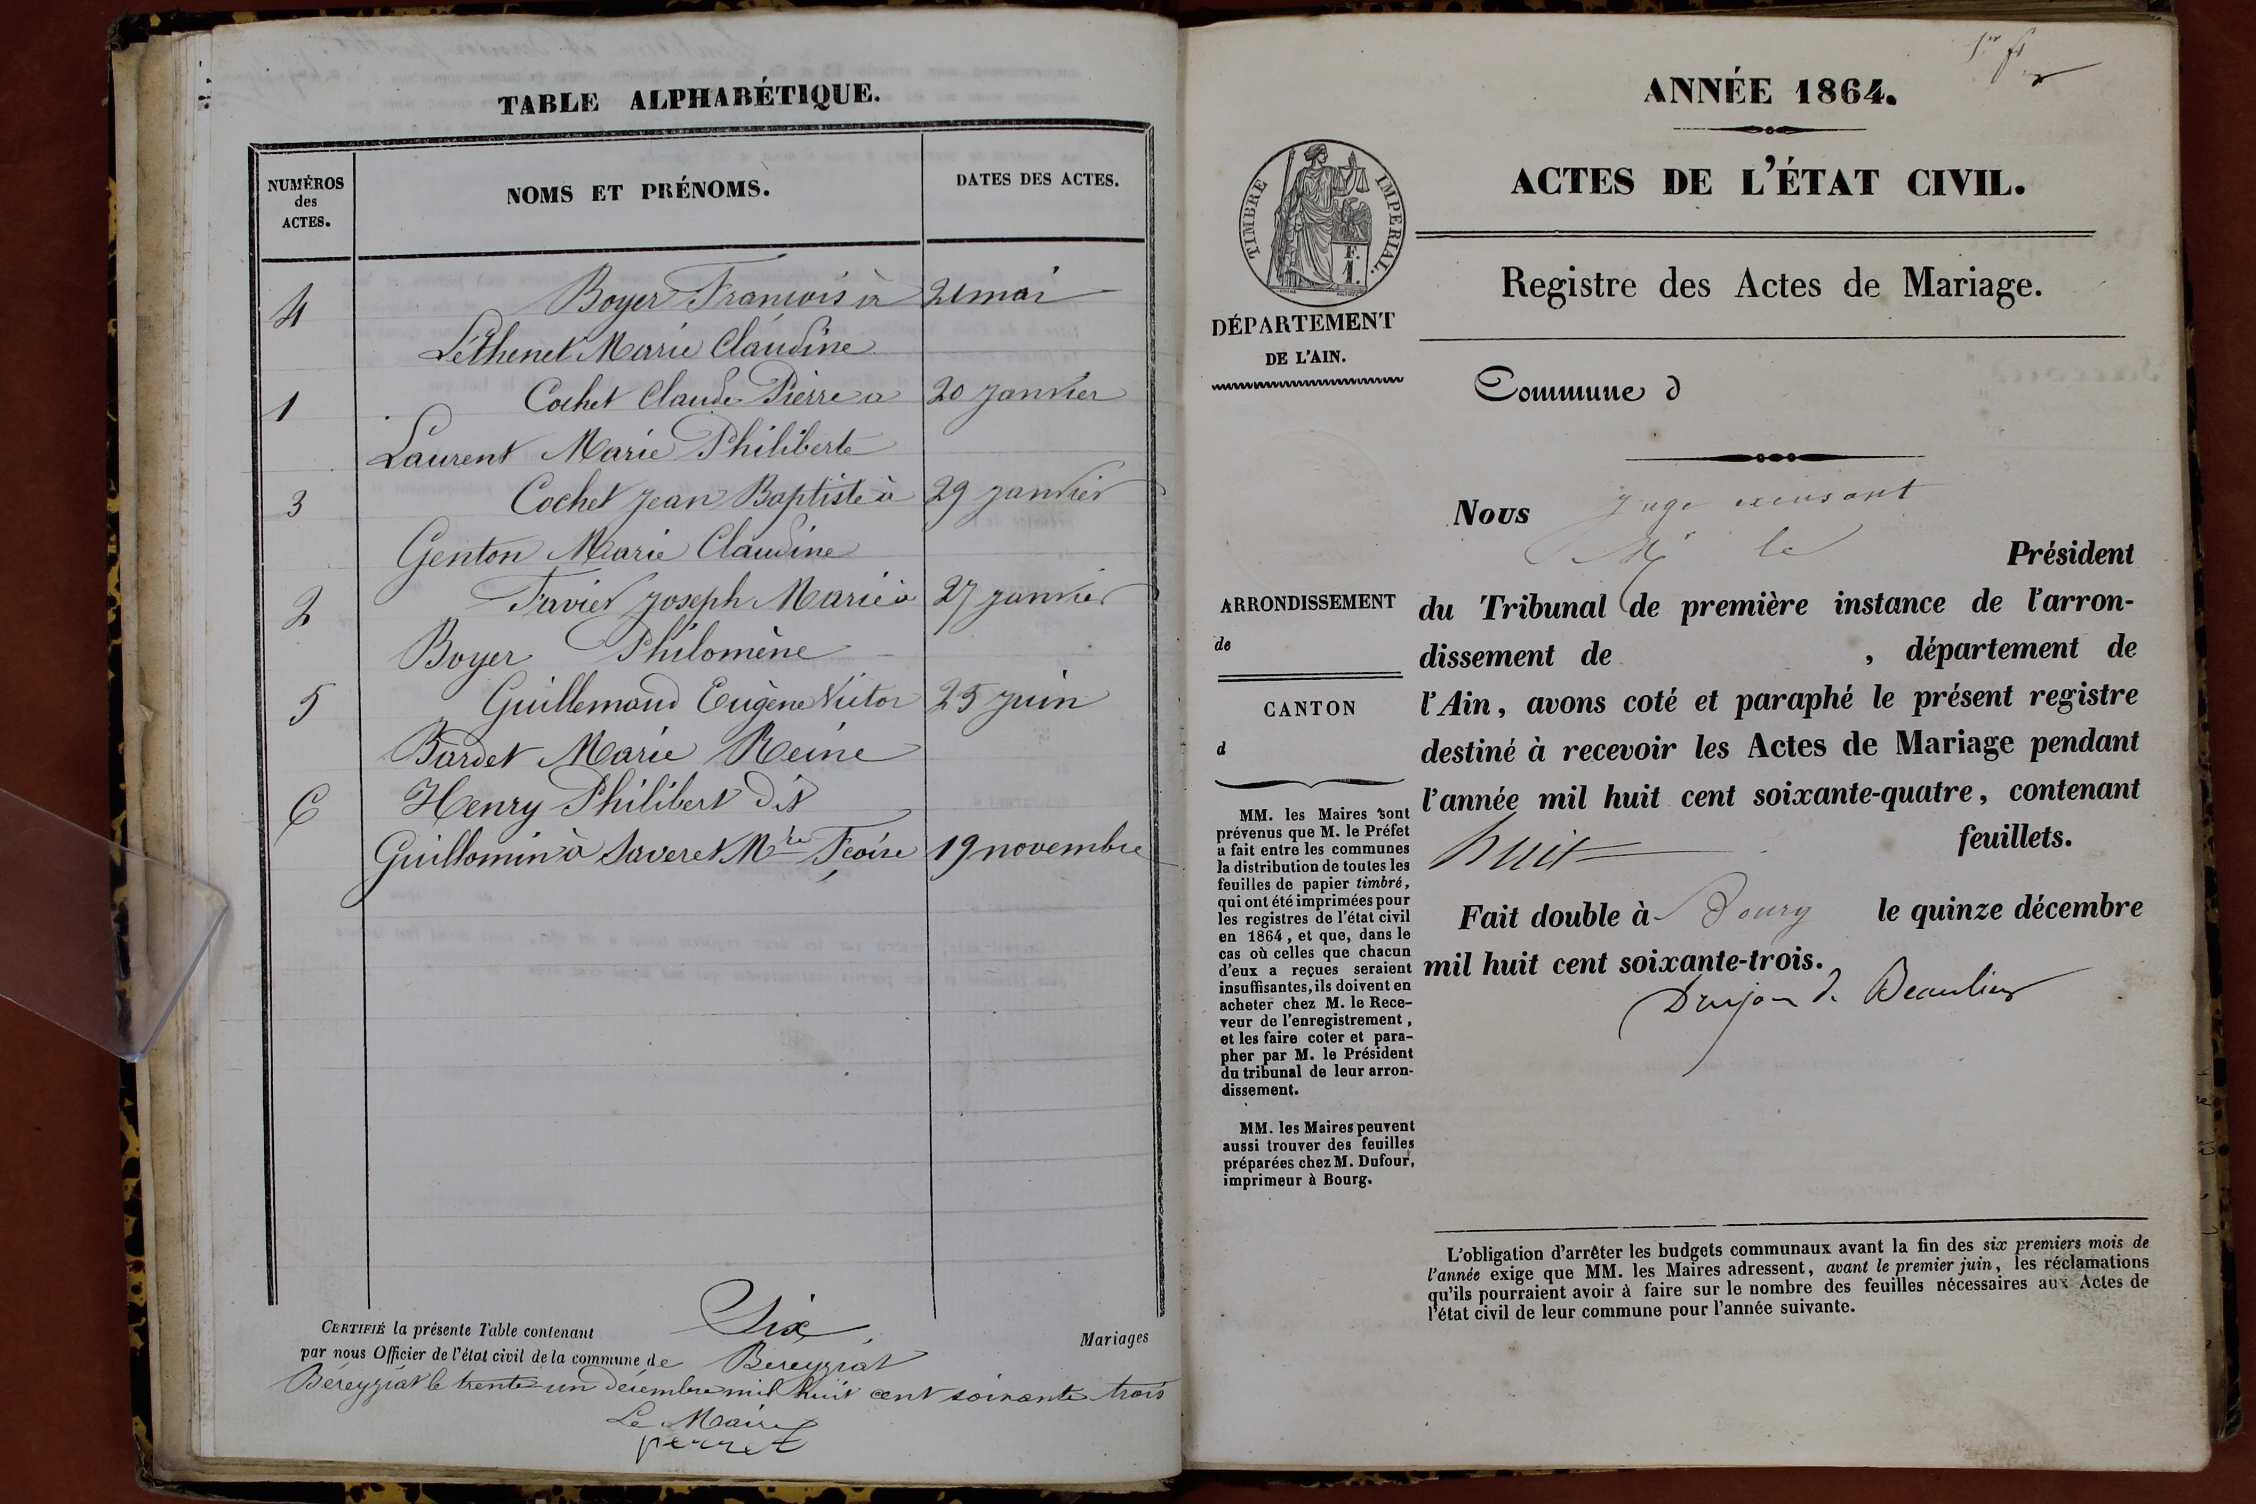 TABLE ALPHABÉTIQUE.
NUMÉROS
des
ACTES.
NOMS ET PRÉNOMS.
DATES DES ACTES.
4 Boyer François à 21 mai
Léthenet Marie Claudine
1 Cochet Claude Pierre a 20 janvier
Laurent Marie Philiberte
3 Cochet Jean Baptiste à 29 janvier
Genton Marie Claudine
2 Favier Joseph Marie à 27 janvier
Boyer Philomène
5 Guillemaud Eugène Victor 25 juin
Bardet Marie Reine
6 Henry Philibert dit
Guillomin à Saveret Mrie 19 novembre
CERTIFIÉ la présente Table contenant Six Mariages
par nous Officier de l'état civil de la commune de Béreyziat
Béreyziat le trente un décembre mil huit cent soixante trois
Le Maire
perret
ANNÉE 1864.
ACTES DE L'ÉTAT CIVIL.
TIMBRE IMPERIAL.
F.
1.
Registre des Actes de Mariage.
DÉPARTEMENT
DE L'AIN.
Commune d
Nous Juge
Mr le Président
du Tribunal de première instance de l'arron-
dissement de , département de
l'Ain, avons coté et paraphé le présent registre
destiné à recevoir les Actes de Mariage pendant
l'année mil huit cent soixante-quatre, contenant
huit feuillets.
Fait double à Bourg le quinze décembre
mil huit cent soixante-trois.
Drujon de Beaulieu
ARRONDISSEMENT
de
CANTON
d
MM. les Maires sont
prévenus que M. le Préfet
a fait entre les communes
la distribution de toutes les
feuilles de papier timbré,
qui ont été imprimées pour
les registres de l'état civil
en 1864, et que, dans le
cas où celles que chacun
d'eux a reçues seraient
insuffisantes, ils doivent en
acheter chez M. le Rece-
veur de l'enregistrement,
et les faire coter et para-
pher par M. le Président
du tribunal de leur arron-
dissement.
MM. les Maires peuvent
aussi trouver des feuilles
préparées chez M. Dufour,
imprimeur à Bourg.
L'obligation d'arrêter les budgets communaux avant la fin des six premiers mois de
l'année exige que MM. les Maires adressent, avant le premier juin, les réclamations
qu'ils pourraient avoir à faire sur le nombre des feuilles nécessaires aux Actes de
l'état civil de leur commune pour l'année suivante.